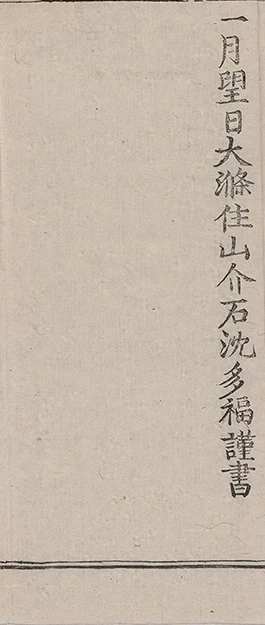 一月望日大滌住山介石沈多福謹書